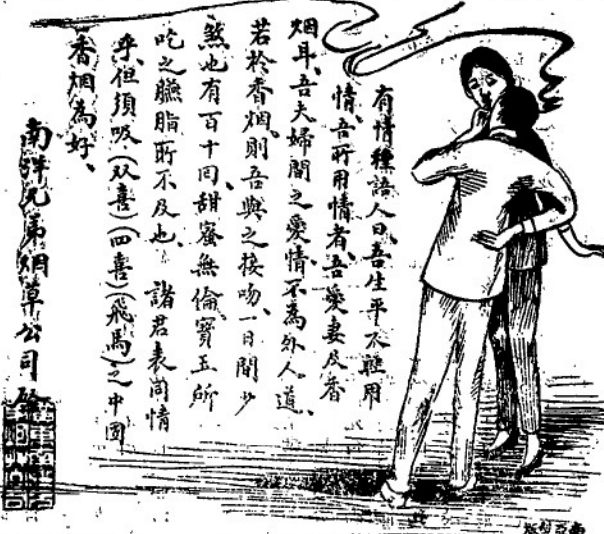 有情種語人曰、吾生平不輕用
情、吾所用情者、吾愛妻及香
烟耳、吾夫婦間之愛情、不為外人道、
若於香烟、則吾與之接吻、一日間少
煞也有百十回、甜蜜無倫、寶玉所
吃之臙脂所不及也、諸君表同情
乎、但須吸(双喜)(四喜)(飛馬)之中国
香烟為好、
南洋兄弟烟草公司啓